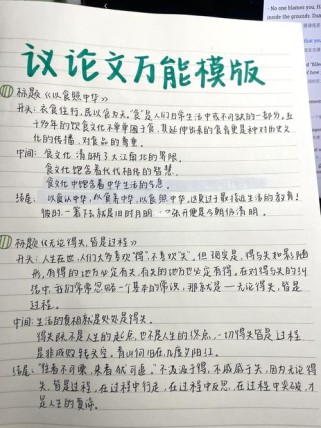 - No one blames you, H
inside the grounds. Dum
议论文万能模版
标题《以食照中华》
开头:衣食住行,民以食为天。"食"是人们日常生活中或不可缺的一部分,五
千多年的饮食文化不单单囿于食,其延伸出来的食育更是种对历史文
化的传播,对食品的尊重。
中间:食文化 清晰了大江南北的界限。
食文化包含着代代相传的智慧。
食文化中饱含着中华生活的气息。
结尾: 以食认中华,以食看中华,以食照中华,这莫过于最接近生活的教育!
彼时一箸下去就是旧时月明,一张开便是今朝
标题《无论得失,皆是过程》
开头:人生在世,人们大多喜欢"得",不喜欢"失"。但现实是,得与失如影随
形,有得的地方必定有失,有失的地方也必定有得。在对得与失的纠
结中,我们常常忽略一个基本的常识,那就是——无论得失,皆是
过程。
中间:生活的真相就是处处是得失。
得失既不是人生的起点,也不是人生的终点,一切得失皆是过程
是非成败转头空,青山依旧在,几度夕阳红。
结尾:"往者不可谏,来者犹可追。"不汲汲于得,不戚戚于失,因为无论得
失,皆是过程,在过程中行走,在过程中反思,在过程中突破,才
是人生的真谛。